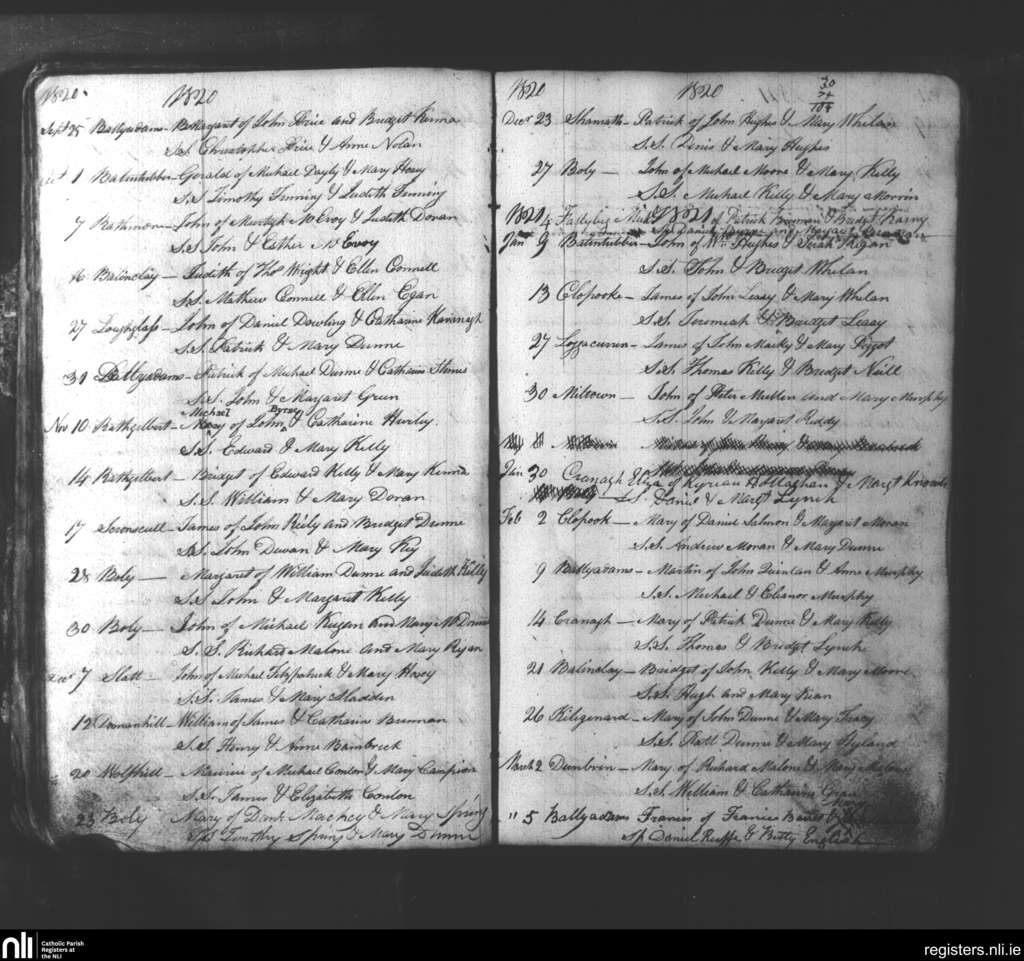 1820. 1820
Sept 25 Ballyadams - Margaret of John Price and Bridget Kinna
S.S. Christopher Price & Anne Nolan
Oct 1 Balintubber - Gerald of Michael Dayly & Mary Hoey
S.S Timothy Finning & Judith Finning
7 Rathmore - John of Murtagh McEvoy & Judith Doran
S.S John & Esther McEvoy
16 Balinclay - Judith of Thos Wright & Ellen Connell
S.S. Mathew Connell & Ellen Egan
27 Loughglass - John of Daniel Dowling & Catharine Kavanagh
S.S. Patrick & Mary Dunne
31 Ballyadams - Patrick of Michael Dunne & Catharine
S.S. John & Margaret Green
Michael Byrne
Nov 10 Rathgilbert - Mary of John & Catharine Hurley.
S.S. Edward & Mary Kelly
14 Rathgilbert - Bridget of Edward Kelly & Mary Kinna
S.S. William & Mary Doran
17 - James of John Reily and Bridget Dunne
S.S. John Dewan & Mary Key
28 Boly - Margaret of William Dunne and Judith Kelly
S.S John & Margaret Kelly
30 Boly - John of Michael Keegan and Mary
S.S. Richard Malone and Mary Ryan
Decr 7 Slatt - John of Michael Fitzpatrick & Mary Hovey
S.S. James & Mary Gladden
12 Doonanhill - William of James & Catharin Brennan
S.S. Henry & Anne Bambrick
20 Wolfhill - of Michael Conlon & Mary Campion
S.S. James & Elizabeth Conlon
23 Boly Mary of Danl Mackey & Mary Spring
Sps Timothy Spring & Mary Dunne
1820 1820 30
Decr 23 Shanrath - Patrick of John Hughes & Mary Whelan
S.S. Denis & Mary Hughes
27 Boly - John of Michael Moore & Mary Kelly
S.S. Michael Kelly & Mary Morrin
1821 1821
4 of Patrick Brennan & Bridget
Jan 9 Balintubber - John of Wm Hughes & Sarah Regan
S.S. John & Bridget Whelan
13 Clopooke - James of John Leasy & Mary Whelan
S.S. Jeremiah & Bridget Leasy
27 Loggacurren - James of John Macky & Mary Piggot
S.S. Thomas Kelly & Bridget Neill
30 Miltown - John of Peter Mullen and Mary Murphy
S.S. John & Margaret Reddy
Jan 30 Cranagh Eliza of Kyrian Hollaghan & Margt
S. Daniel & Margt Lynch
Feb 2 Clopook - Mary of Daniel Salmon & Margaret Moran
S.S. Andrew Moran & Mary Dunne
9 Ballyadams - Martin of John Quinlan & Anne Murphy
S.S. Michael & Eleanor Murphy
14 Cranagh - Mary of Patrick Dunne & Mary Kelly
S.S. Thomas & Bridget Lynch
21 Balinclay - Bridget of John Kelly & Mary Moore
S.S. Hugh and Mary Kean
26 Kilgenard - Mary of John Dunne & Mary Tracy
S.S. Dunne & Mary Hyland
March 2 Dunbrin - Mary of Richard Malone & Mary Malone
S.S. William & Catharine
" 5 Ballyadams Francis of Francis
Sp Daniel & Betty English
nli Catholic Parish
Registers at
the NLI
registers.nli.ie